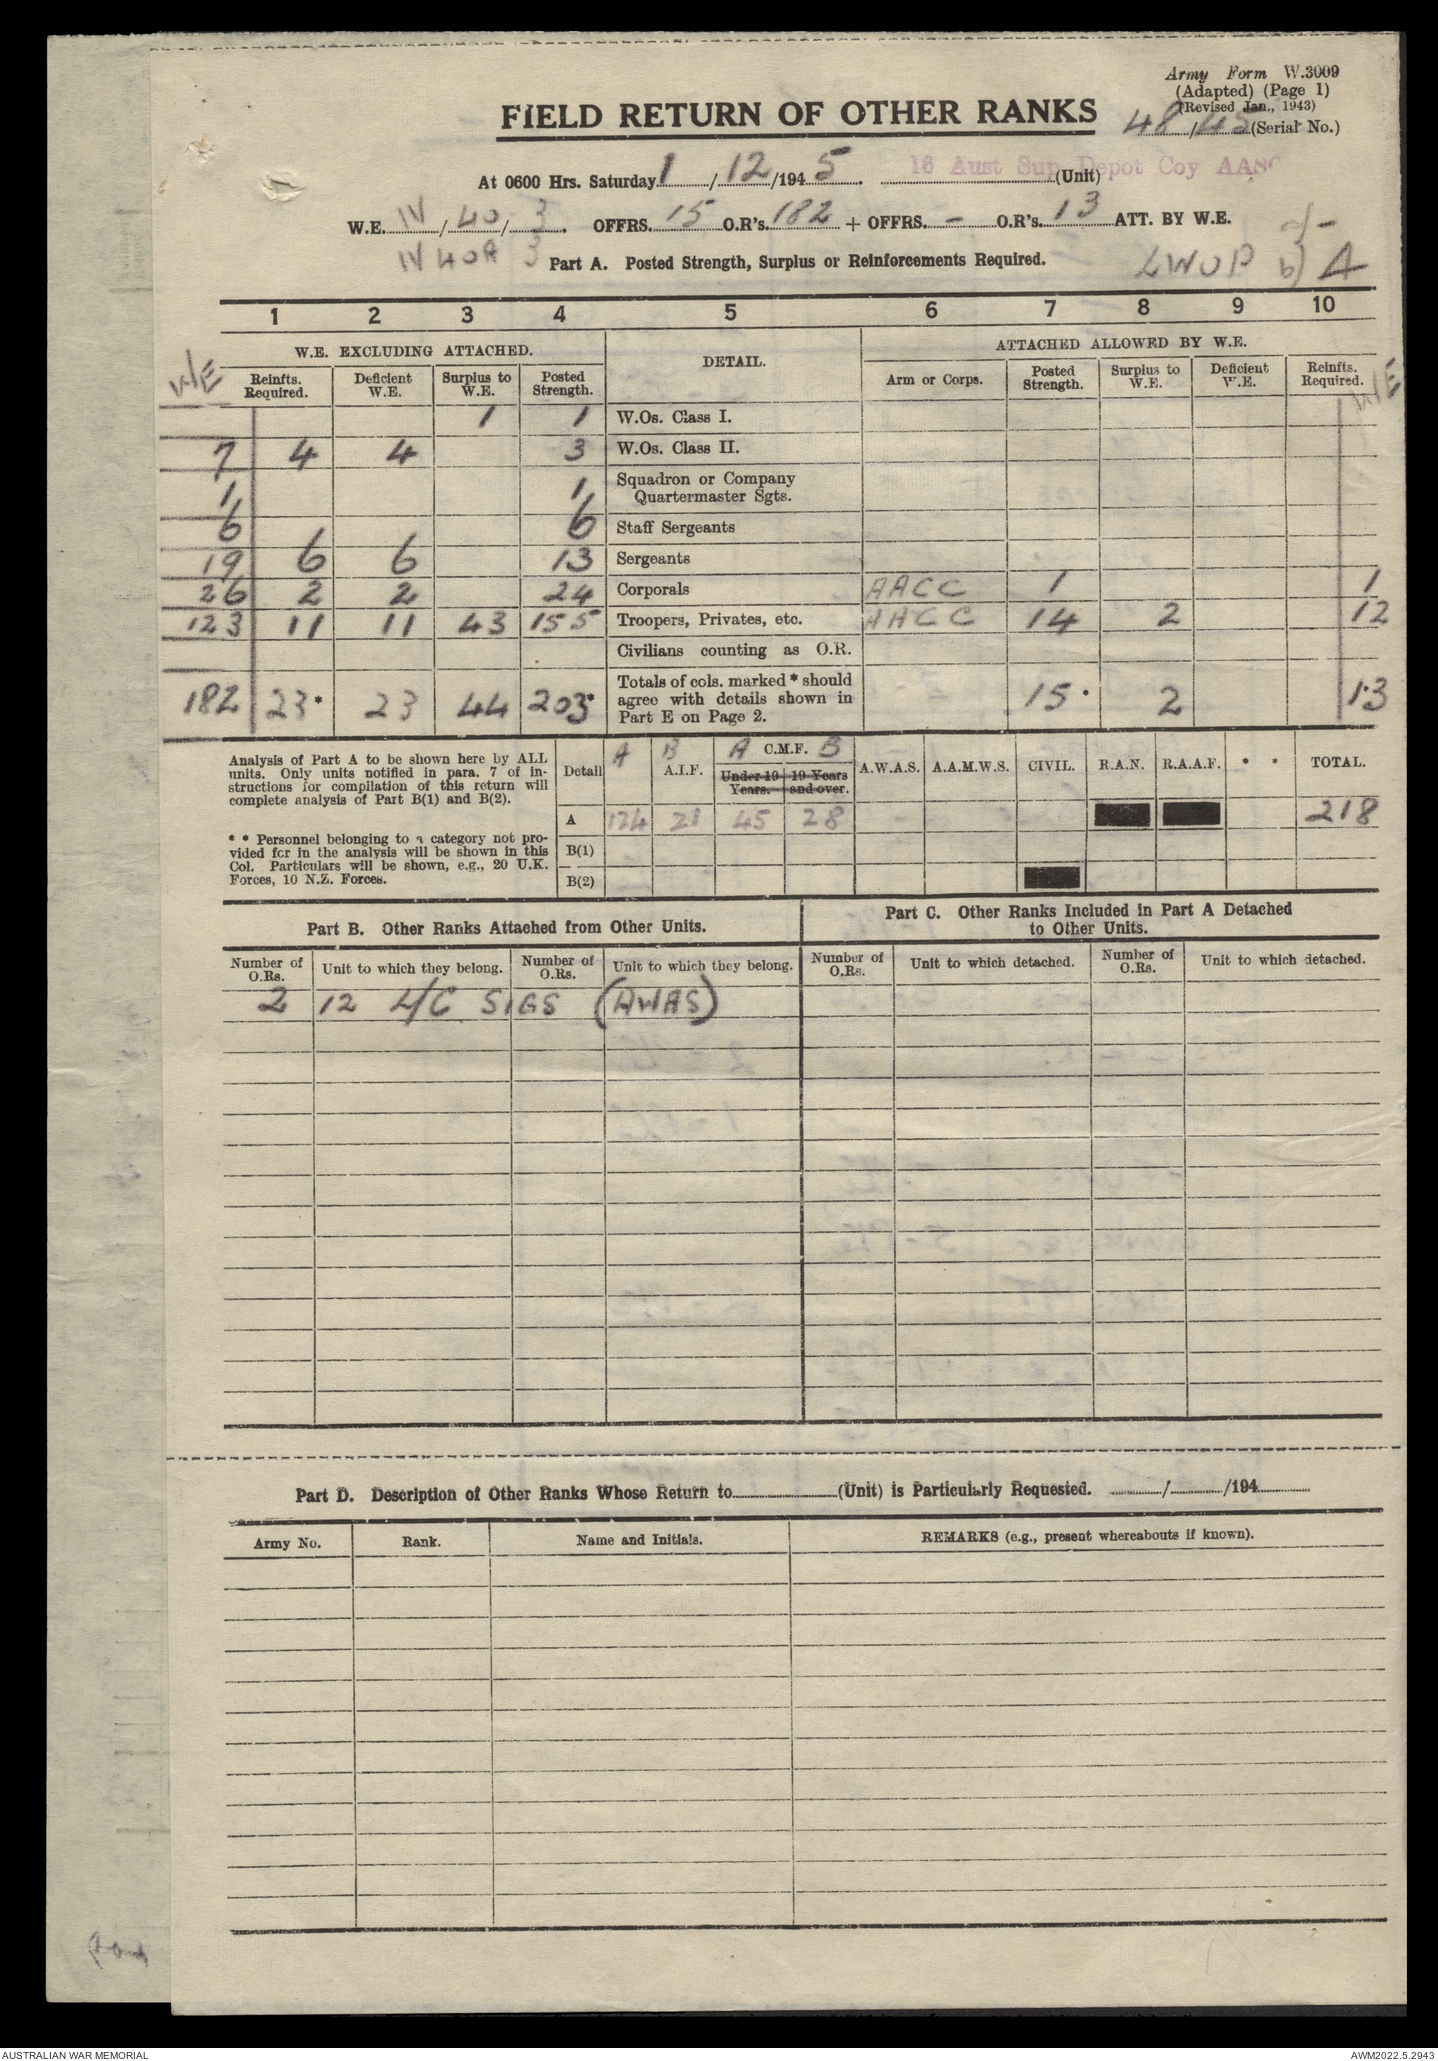 Army Form W.3009
(Adapted) (Page 1)
(Revised Jan., 1943)
FIELD RETURN OF OTHER RANKS
48/45 (Serial No.)
At 0600 Hrs. Saturday 1/12/1945. 16 Aust Sup Depot Coy AASC (Unit)
W.E. IV/40/3. OFFRS. 15 O.R's. 182 + OFFRS. - O.R's. 13 ATT. BY W.E.
IV 40A 3
Part A. Posted Strength, Surplus or Reinforcements Required.
LWOP b) A
1 2 3 4 5 6 7 8 9 10
W.E. EXCLUDING ATTACHED. DETAIL. ATTACHED ALLOWED BY W.E.
W/E Reinfts. Required. Deficient W.E. Surplus to W.E. Posted Strength. Arm or Corps. Posted Strength. Surplus to W.E. Deficient W.E. Reinfts. Required. W/E
1 1 W.Os. Class I.
7 4 4 3 W.Os. Class II.
1 1 Squadron or Company Quartermaster Sgts.
6 6 Staff Sergeants
19 6 6 13 Sergeants
26 2 2 24 Corporals AACC 1 1
123 11 11 43 155 Troopers, Privates, etc. AACC 14 2 12
Civilians counting as O.R.
182 23* 23 44 203* Totals of cols. marked * should agree with details shown in Part E on Page 2. 15 2 13
Analysis of Part A to be shown here by ALL
units. Only units notified in para. 7 of in-
structions for compilation of this return will
complete analysis of Part B(1) and B(2).
* * Personnel belonging to a category not pro-
vided for in the analysis will be shown in this
Col. Particulars will be shown, e.g., 20 U.K.
Forces, 10 N.Z. Forces.
Detail A B A.I.F. A C.M.F. B A.W.A.S. A.A.M.W.S. CIVIL. R.A.N. R.A.A.F. * * TOTAL.
Under 19 Years. 19 Years and over.
A 124 21 45 28 218
B(1)
B(2)
Part B. Other Ranks Attached from Other Units.
Part C. Other Ranks Included in Part A Detached
to Other Units.
Number of O.Rs. Unit to which they belong. Number of O.Rs. Unit to which they belong. Number of O.Rs. Unit to which detached. Number of O.Rs. Unit to which detached.
2 12 L/C SIGS (AWAS)
Part D. Description of Other Ranks Whose Return to (Unit) is Particularly Requested. / /194
Army No. Rank. Name and Initials. REMARKS (e.g., present whereabouts if known).
AUSTRALIAN WAR MEMORIAL
AWM2022.5.2943